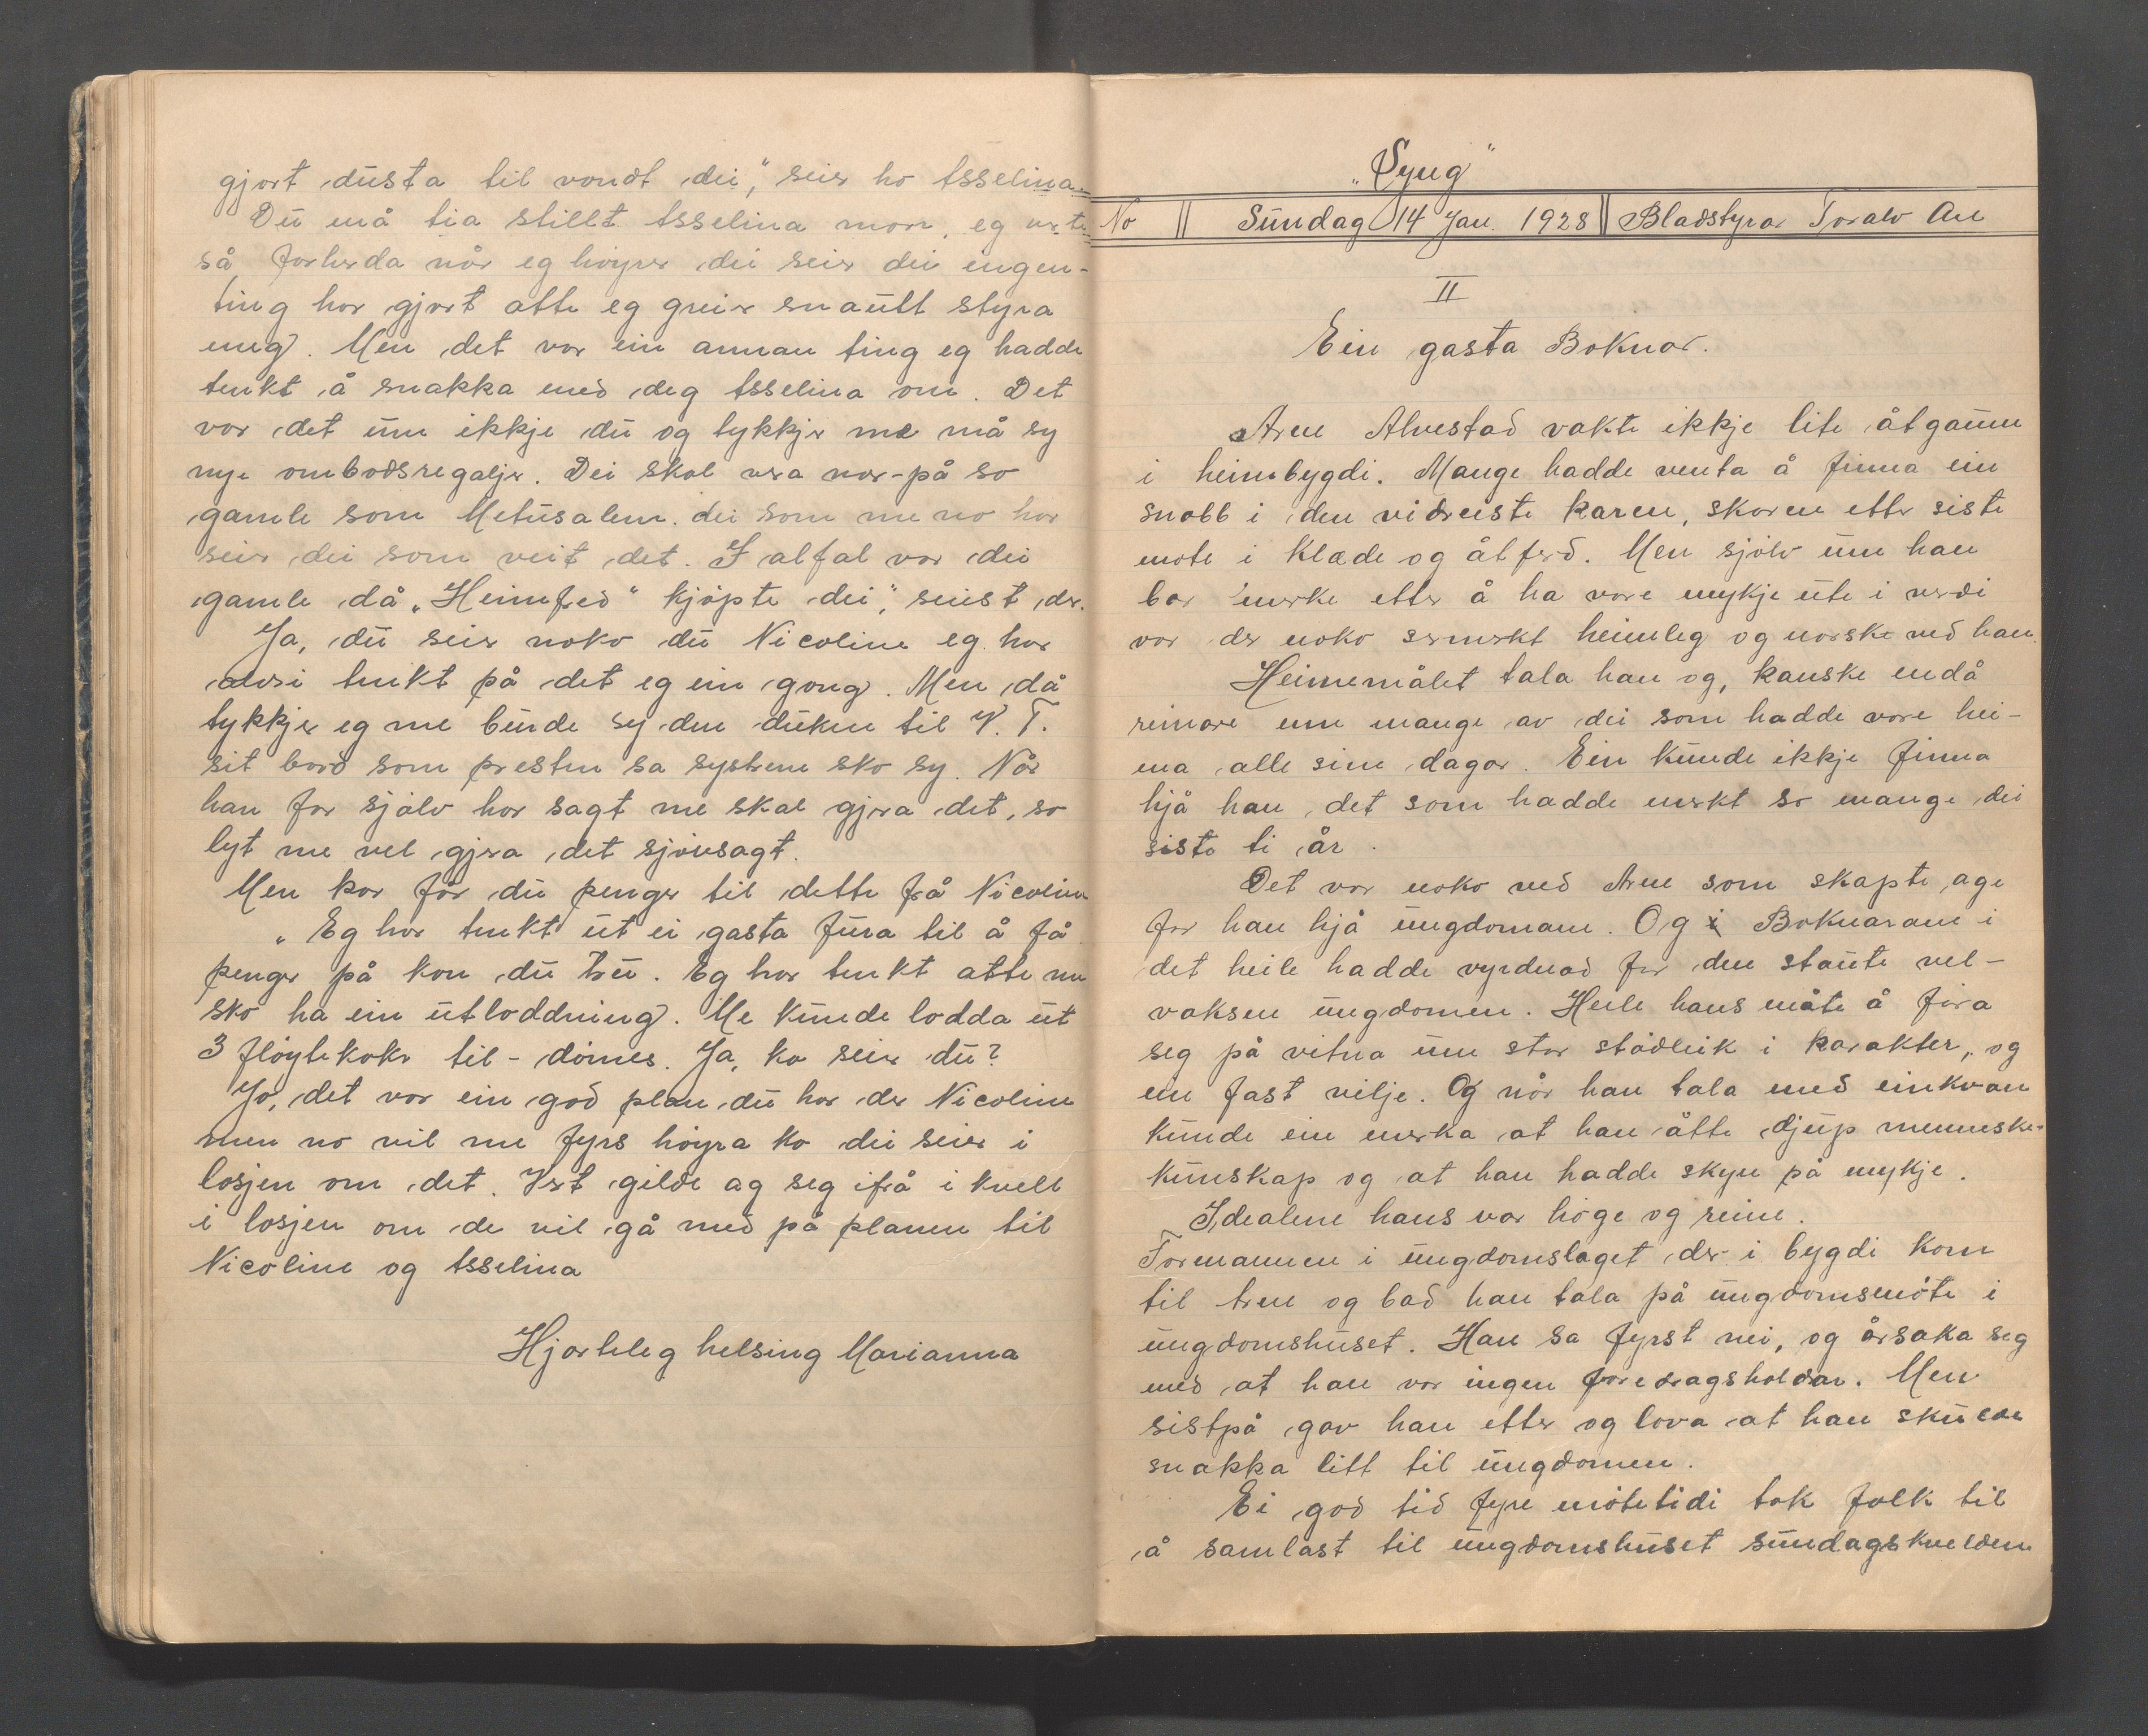 gjort dusta til vondt dei," seier ho Asselina.
Du må tia stillt Asselina mor, eg verte
så forherda når eg höyrer dei seier dei ingen-
ting har gjort atte eg greier snautt styra
meg. Men det var ein annan ting eg hadde
tenkt å snakka med deg Asselina om. Det
var det um ikkje du og tykkjer me må sy
nye ombodsregaljer. Dei skal vera nær-på so
gamle som Metusalem. dei som me no har
seier dei som veit det. I alfal var dei
gamle då „Heimfred" kjöpte dei," seiest der.
Ja, du seier noko du Nicoline eg har
alvsi tenkt på det eg ein gong. Men då
tykkjer eg me burde sy den duken til V. T.
sit bord som presten sa systrene sko sy. Når
han far sjölv har sagt me skal gjera det, so
lyt me vel gjera det sjövsagt.
Men kor får du penger til dette frå Nicoline
„Eg har tenkt ut ei gasta fura til å få
penger på kan du tru. Eg har tenkt atte me
sko ha ein utloddning. Me kunde lodda ut
3 flöytekaker til-dömes. Ja, ka seier du?
Jo, det var ein god plan du har der Nicoline
men no vil me fyrs höyra ka dei seier i
losjen om det. Vert gilde ag seg ifrå i kveld
i losjen om de vil gå med på planen til
Nicoline og Asselina
Hjarteleg helsing Marianna
„Syng"
No Sundag 14 Jan. 1928 Bladstyrar Toralv Aa
II
Ein gasta Boknar.
Arne Alvestad vakte ikkje lite åtgaum
i heimbygdi. Mange hadde venta å finna ein
snobb i den vidreiste karen, skoren etter siste
mote i klæde og åtferd. Men sjölv um han
bar merke etter å ha vore mykje ute i verdi
var der noko sermerkt heimleg og norske ved han.
Heimemålet tala han og, kanske endå
reinare enn mange av dei som hadde vore hei-
ma alle sine dagar. Ein kunde ikkje finna
hjå han det som hadde merkt so mange dei
siste ti år.
Det var noko ved Arne som skapte age
for han hjå ungdomane. Og Boknarane i
det heile hadde vyrdnad for den staute vel-
vaksne ungdomen. Heile hans måte å föra
seg på vitna um stor stödleik i karakter, og
ein fast vilje. Og når han tala med einkvan
kunde ein merka at han åtte djup menneske-
kunskap og at han hadde skyn på mykje.
Idealene hans var höge og reine.
Formannen i ungdomslaget der i bygdi kom
til Arne og bad han tala på ungdomsmöte i
ungdomshuset. Han sa fyrst nei, og årsaka seg
med at han var ingen foredragsholdar. Men
sistpå gav han etter og lova at han skulde
snakka litt til ungdomen.
Ei god tid fyre mötetidi tok folk til
å samlast til ungdomshuset sundagskvelden